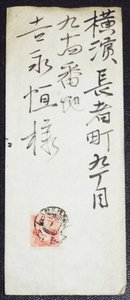 横濱長者町九丁目
九十四番地
吉永恒様